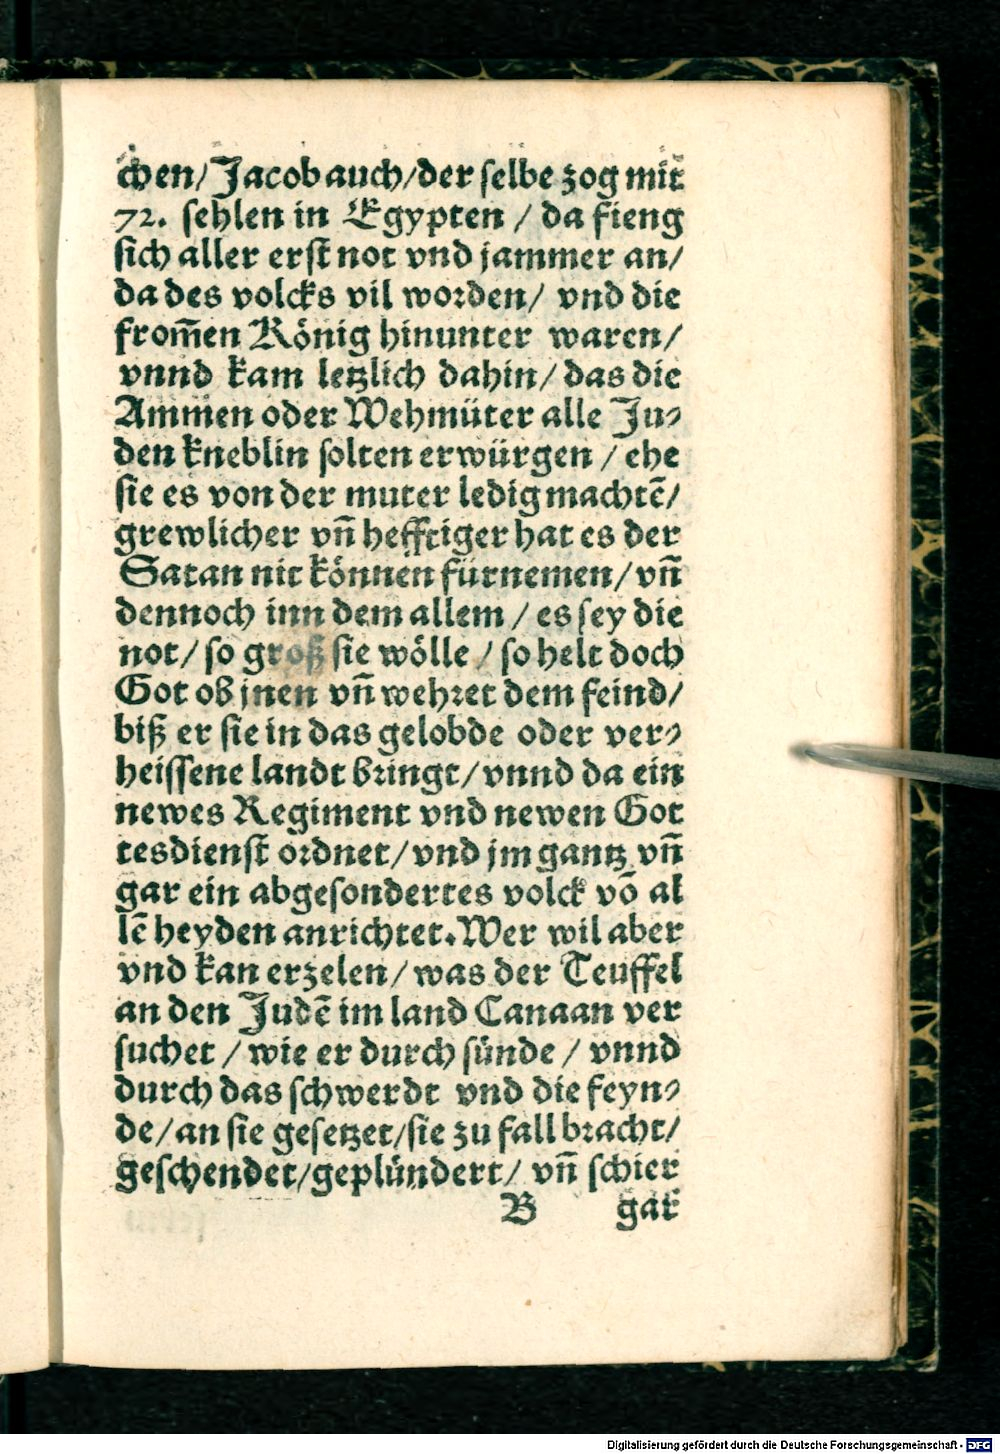 chen/ Jacob auch/ der selbe zog mit
72. sehlen in Egypten / da fieng
sich aller erst not vnd jammer an/
da des volcks vil worden/ vnd die
from̃en König hinunter waren/
vnnd kam letzlich dahin/ das die
Ammen oder Wehmüter alle Ju⸗
den kneblin solten erwürgen / ehe
sie es von der muter ledig machtẽ/
grewlicher vñ hefftiger hat es der
Satan nit können fürnemen/ vñ
dennoch inn dem allem / es sey die
not/ so groß sie wölle / so helt doch
Got ob jnen vñ wehret dem feind/
biß er sie in das gelobde oder ver⸗
heissene landt bringt/ vnnd da ein
newes Regiment vnd newen Got
tesdienst ordnet/ vnd jm gantz vñ
gar ein abgesondertes volck võ al
lẽ heyden anrichtet. Wer wil aber
vnd kan erzelen/ was der Teuffel
an den Judẽ im land Canaan ver
suchet / wie er durch sünde / vnnd
durch das schwerdt vnd die feyn⸗
de/ an sie gesetzet/ sie zu fall bracht/
geschendet/ geplündert/ vñ schier
B gar
Digitalisierung gefördert durch die Deutsche Forschungsgemeinschaft - DFG